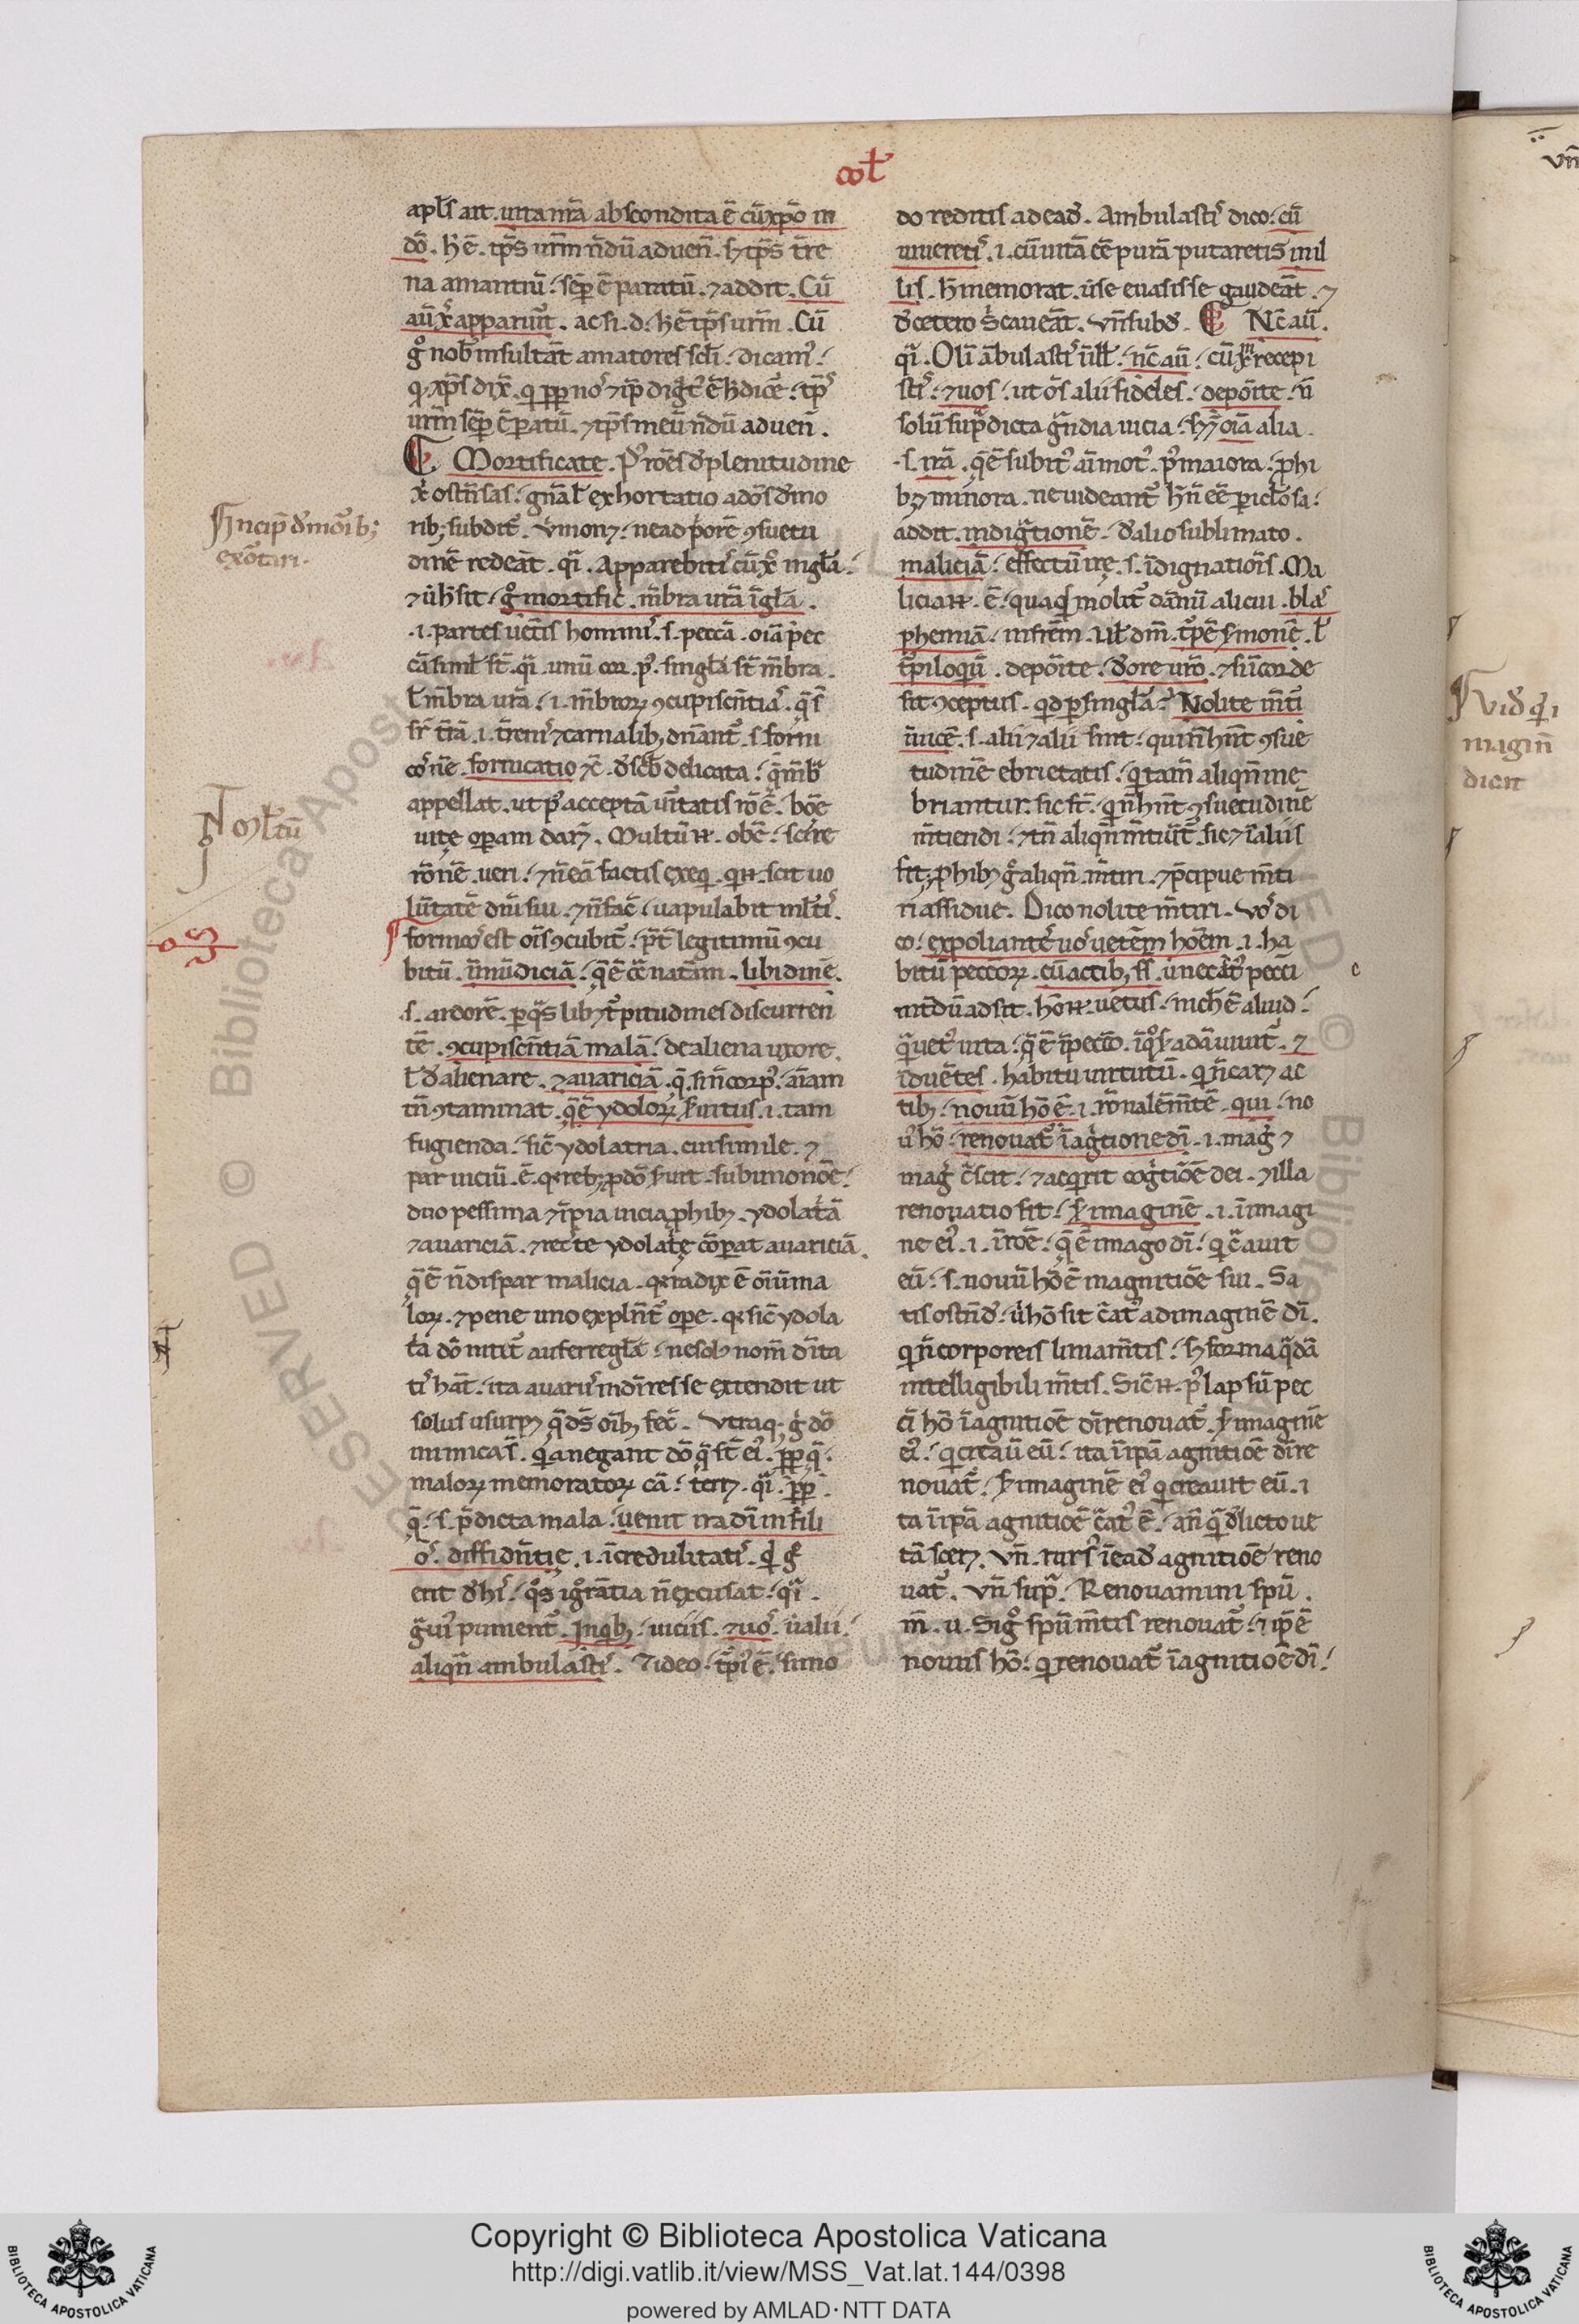 coł
apl̃s ait. uita nr̃a abscondita ẽ cũ xp̃o in
dõ. h̃ ẽ. tp̃s ur̃m ñdũ aduen̄. s; tp̃s t̃re
na amantiũ. sẽp ẽ paratũ. ⁊ addit. Cũ
aũ xp̃s apparuit̃. ac si. d. h̃ ẽ tp̃s ur̃m. Cũ
g̊ nob̃ insultãt amatores scl̃i. dicam᷒.
q xp̃s dix̃. q pp nos ⁊ ip̃e dig̃t᷒ ẽ h̃ dice᷒. tp᷒s
ur̃m sẽp ẽ paratũ. ⁊ tp̃s meũ ñdũ aduen̄.
Mortificate. P᷒ rões d̃ plenitudine
xp̃i ostñsas. gñal̃ exhortatio ad õs d̃ mo
rib; subdit᷒. Vn̄ mon;. ne ad p̕orẽ ꝯsuetu
dinẽ redeãt. q̃i. Apparebitis cũ xp̃o in gl̃a.
⁊ ũ h̃ sit. g̊ mortific̃. m̃bra ur̃a i gl̃a.
.i. partes uet̃is hominis. s. pecc̃a. oĩa p̕ec
c̃a simul st̃. q̃i. unũ cor. p᷒. singl̃a st̃ m̃bra.
l̃ m̃bra ur̃a. i. m̃broꝝ ꝯcupiscñtias. q̃ s̃
sr̃ t̃rã. i. t̃renis ⁊ carnalib; dñant᷒. s. forni
cõnẽ. fornicatio ⁊c̃. d̃ scl̃i delicata. q̃ m̃b᷒a
appellat. ut p᷒ acceptã ueritatis rõẽ. bõe
uite opam dar;. Multũ n̄. obẽ. scire
rõnẽ ueri. ⁊ ñ eã factis exeq. q n̄. scit uo
lũtatẽ dñi sui. ⁊ ñ fac̃. uapulabit ml̃tis.
fornicõ est oĩs ꝯcubit᷒. p̃t legitimũ ꝯcu
bitũ. ĩmũdiciã. q̃ ẽ cõ̃ natãm. libidinẽ.
.s. ardorẽ. p q̃s lib; t᷒pitudines discurren
tẽ. ꝯcupiscñtiã malã. de aliena uxore.
l̃ d̃ alienare. ⁊ auariciã. q̃. sin̄ corp᷒. aĩam
tñ ꝯtaminat. q̃ ẽ ydoloꝝ s̃uitus. i. tam
fugienda. sic̃ ydolatria. cui simile. ⁊
par uiciũ. ẽ. q reb; p dõ s̃uit. sub uno noĩe.
duo pessima ⁊ ĩpia uicia phib;. ydolat̃ã
⁊ auariciã. ⁊ recte ydolat̃e cõparat auariciã.
q̃ ẽ ñ dispar malicia. q radix ẽ oĩũ ma
loꝝ. ⁊ pene uno explet᷒ ope. q sic̃ ydola
t̃a dõ nitit᷒ auferre gl̃ã. ne sol᷒ nom̄ dĩta
tis hãt. ita auarus in dĩ res se extendit ut
solus usurp; q̃ ds̃ oĩb; fec̃. Vtraq; g̕ dõ
inimica s̃. q̕a negant dõ q̃ st̃ ei᷒. pp q̃.
maloꝝ memoratoꝝ cã. terr;. q̃i. pp
q̃. s. p̃dicta mala. uenit ira dĩ in fili
os. diffidñtie. i. ĩcredulitatis. q̃
erit d̃ his. q̊s ig̊rãtia ñ excusat. q̃i.
g̃ui᷒ punient᷒. In qib;. uiciis. ⁊ uos. ũ alii.
aliqñ ambulastis. ⁊ ideo. t᷒pe ẽ. si mo
do reditis ad ead̃. Ambulastis dico. cũ
uiueretis. i. cũ uitã eẽ purã putaretis in il
lis. h̃ memorat. ũ se euasisse gaudeãt. ⁊
d̃ cetero s̕ caueãt. Vn̄ subd̃. Nc̃ aũ.
q̃i. Olĩ ãbulastis ĩ ill̃. nc̃ aũ. cũ xp̃m recepi
stis. ⁊ uos. ut oẽs alii fideles. depõite. ñ
solũ sup̃dicta g̃ndia uicia. s; ⁊ oĩa alia.
.s. irã. q̃ ẽ subit᷒ aĩ mot᷒. p᷒ maiora. phi
b; ⁊ minora. ne uideant᷒ h̃ ñ eẽ piclosa.
addit. indig̃tionẽ. d̃ alio sublimato.
maliciã. effectũ ire. s. ĩdignatiõis. Ma
licia n̄. ẽ. qua q̃s molit᷒ dãnũ alicui. blas
phemiã. in fr̃em. uł dm̃. t᷒pẽ s̃monẽ. l̃
t᷒piloqũ. depõite. d̃ ore ur̃o. ⁊ si ĩ corde
sit ꝯceptus. qd p singl̃a. Nolite m̃tiri
ĩuicẽ. s. alii ⁊ alii sint. qui ñ hñt ꝯsue
tudinẽ ebrietatis. q tam̄ aliqñ ine
briantur. sic st̃. q̕ ñ hñt ꝯsuetudinẽ
m̃tiendi. ⁊ tñ aliqñ m̃tiũt᷒. sic ⁊ ĩ aliis
fit. phib; g̊ aliqñ m̃tiri. ⁊ p̃cipue m̃ti
ri assidue. Dico nolite m̃tiri. Vos di
co. expoliantes uos ueterẽm hõem. i. ha
bitũ peccõꝝ. cũ actib; s̃s. ũ nec act᷒ pecc̃i
int̃dũ adsit. hõ n̄. uetus. nich̃ ẽ aliud.
q̃ uet᷒ uita. q̃ ẽ ĩ pecc̃o. ĩ q̊ s̃ adã uiuit᷒. ⁊
ĩduẽtes. habitu uirtutũ. q ñ car; ac
tib;. nouũ hõẽ. i. rõnalẽ m̃tẽ. qui. no
u᷒ hõ. renouat᷒ ĩ ag̃tione dĩ. i. mag̕ ⁊
mag̕ c̃scit. ⁊ acqirit cog̃tiõẽ dei. ⁊ illa
renouatio fit. s̃ imaginẽ. i. ĩ imagi
ne ei᷒. i. ĩ rõẽ. q̃ ẽ imago dĩ. q̕ c̃auit
eũ. s. nouũ hõẽ magnitiõe sui. Sa
tis ostñd̃. ũ hõ sit c̃at᷒ ad imaginẽ dĩ.
q ñ corporeis liniam̃tis. s; forma q̃dã
intelligibili m̃tis. Sic̃ n̄. p᷒ lapsũ pec
c̃i hõ ĩ agnitiõe dĩ renouat᷒. s̃ imaginẽ
ei᷒. q̕ creauĩ eũ. ita ĩ ip̃a agnitiõe dĩ re
nouat᷒. s̃ imaginẽ ei᷒ q̕ creauit eũ. i
ta ĩ ip̃a agnitiõe c̃at᷒ ẽ. añ q̃ d̃licto ue
tãscer;. Vn̄. rurs᷒ ĩ ead̃ agnitiõe reno
uat᷒. Vn̄ sup̃. Renouamini sp̃u.
m̃. u. Si g̊ sp̃u m̃tis renouat᷒. ⁊ ip̃e ẽ
nouus hõ. q̕ renouat᷒ ĩ agnitiõe dĩ.
Incip̃ d̃ mõib;
exõtari.
No ml̃tũ
Vid̃ q̕ i
magin̄
dicit
Copyright © Biblioteca Apostolica Vaticana
http://digi.vatlib.it/view/MSS_Vat.lat.144/0398
powered by AMLAD·NTT DATA
BIBLIOTECA APOSTOLICA VATICANA
BIBLIOTECA APOSTOLICA VATICANA